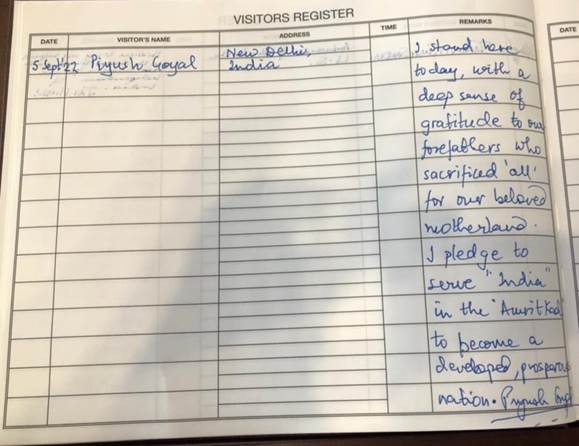 VISITORS REGISTER
DATE VISITOR'S NAME ADDRESS TIME REMARKS DATE
5 Sept'22 Piyush Goyal New Delhi, I stand here
India today, with a
deep sense of
gratitude to our
forefathers who
sacrificed 'all'
for our beloved
motherland.
I pledge to
serve "India"
in the 'Amrit Kaal'
to become a
developed, prosperous
nation. Piyush Goyal